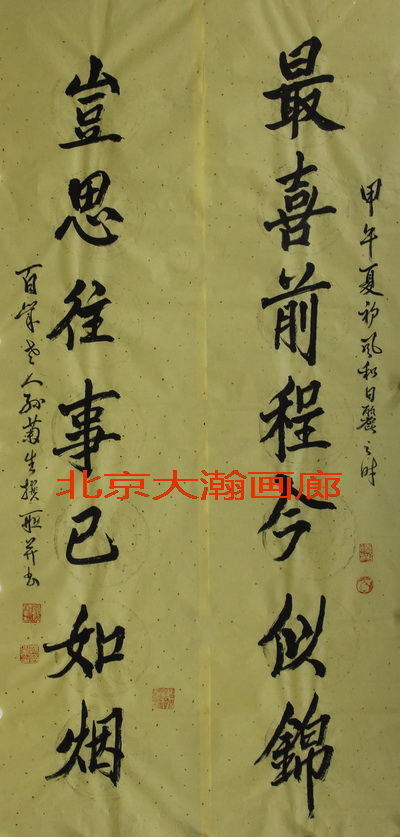 甲午夏初风和日丽之时
最喜前程今似錦
豈思往事已如烟
百年老人孙菊生撰联并书
北京大瀚画廊